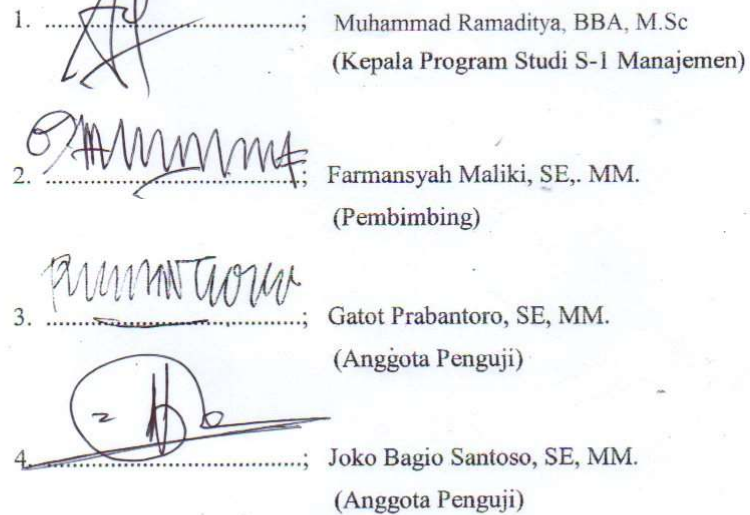 1. ..............................; Muhammad Ramaditya, BBA, M.Sc
(Kepala Program Studi S-1 Manajemen)
2. ..............................; Farmansyah Maliki, SE,. MM.
(Pembimbing)
3. ..............................; Gatot Prabantoro, SE, MM.
(Anggota Penguji)
4. ..............................; Joko Bagio Santoso, SE, MM.
(Anggota Penguji)